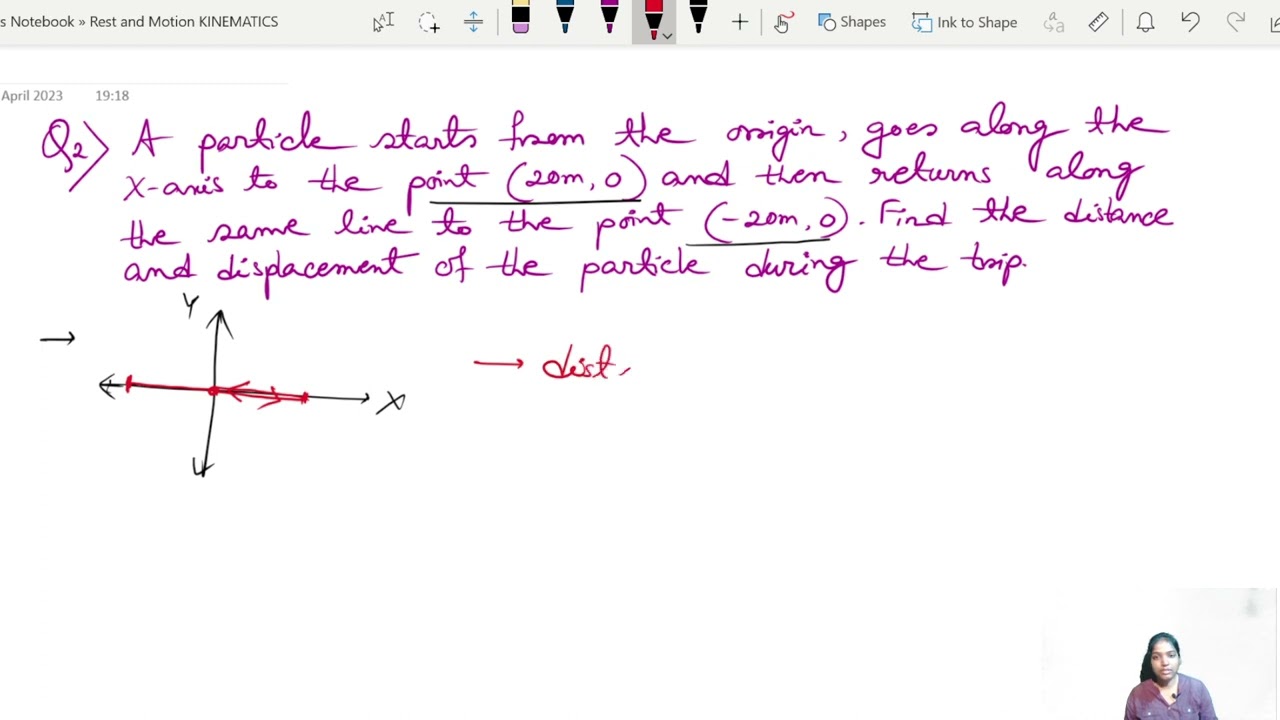 s Notebook » Rest and Motion KINEMATICS
Shapes
Ink to Shape
April 2023 19:18
Q2> A particle starts from the origin, goes along the
X-axis to the point (20m, 0) and then returns along
the same line to the point (-20m, 0). Find the distance
and displacement of the particle during the trip.
Y
→
→ dist.
X